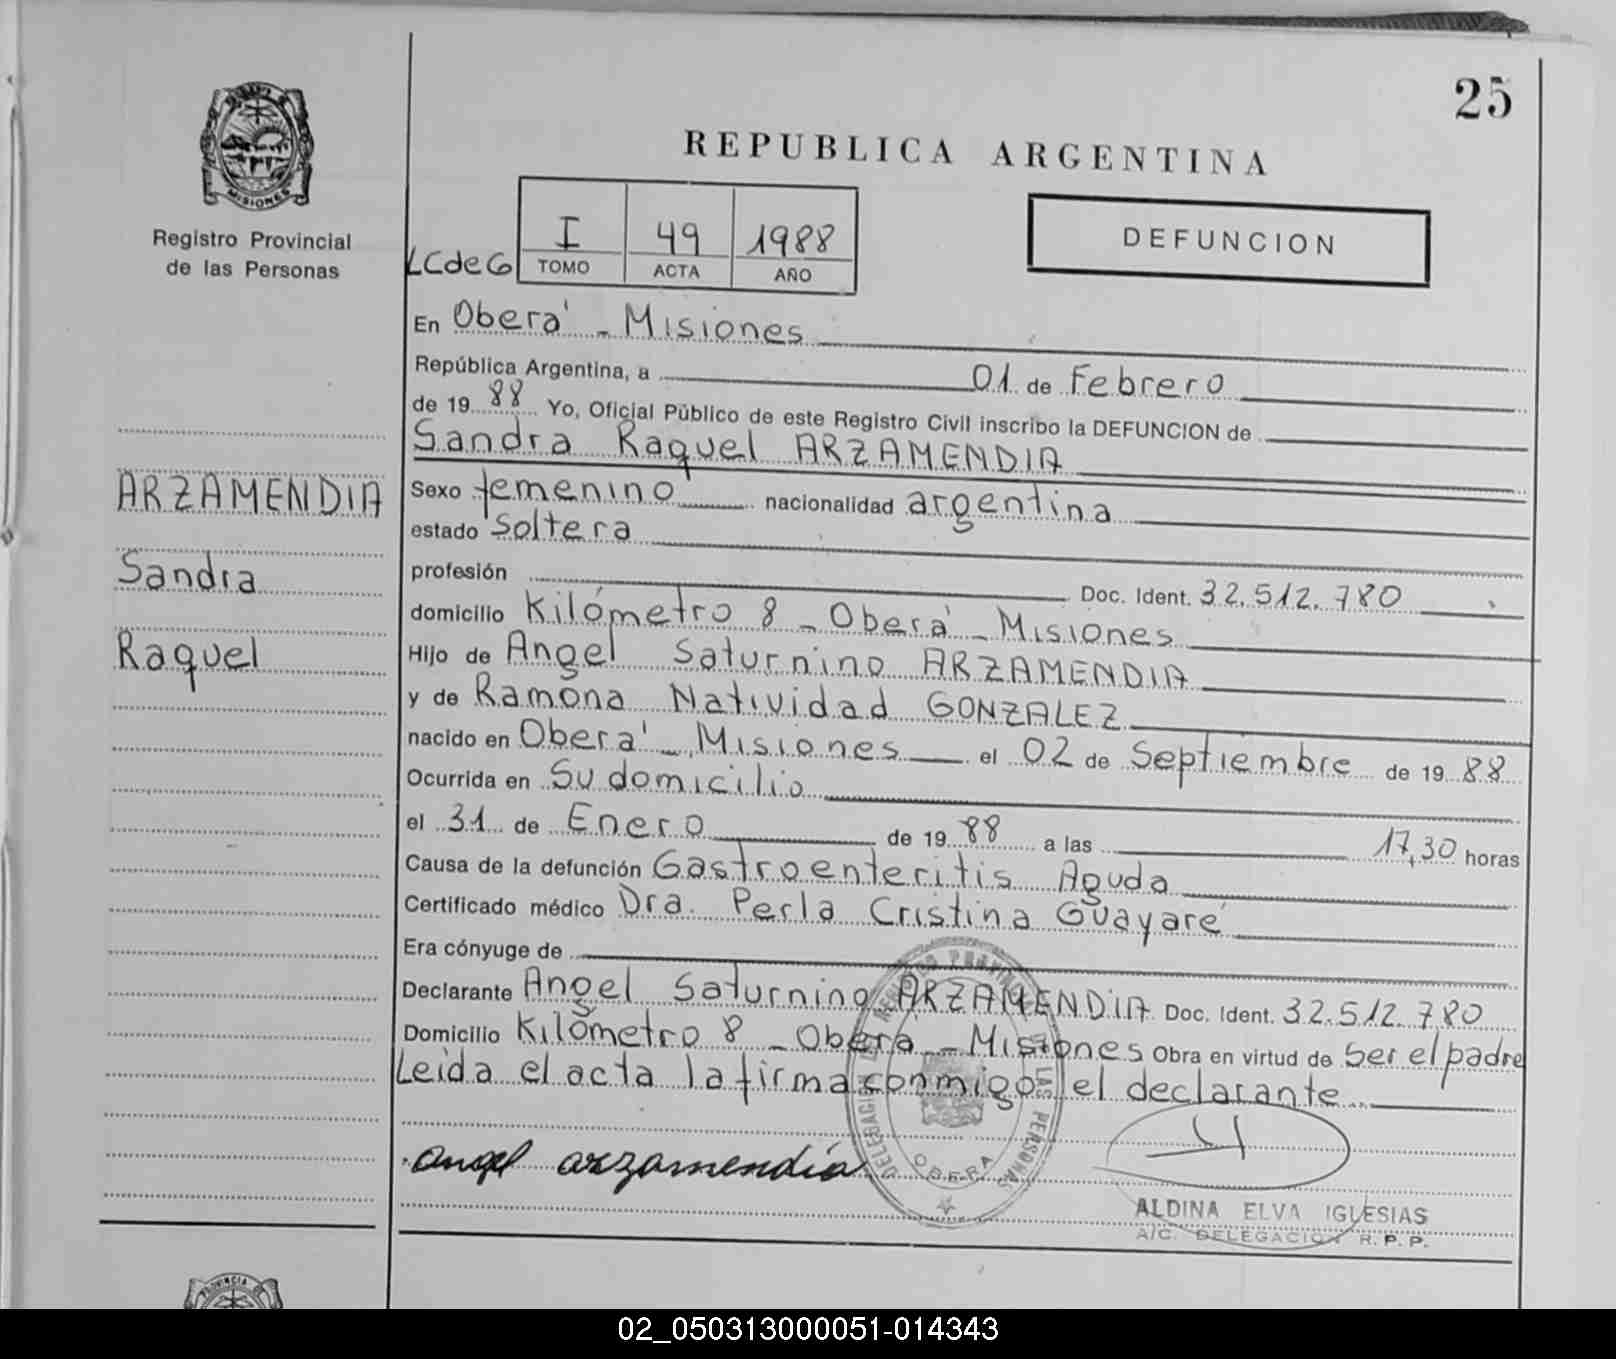 25
REPUBLICA ARGENTINA
MISIONES
Registro Provincial
de las Personas
LCdeG
I 49 1988
TOMO ACTA AÑO
DEFUNCION
En Oberá - Misiones
República Argentina, a 01 de Febrero
de 19 88 Yo, Oficial Público de este Registro Civil inscribo la DEFUNCION de
Sandra Raquel ARZAMENDIA
ARZAMENDIA
Sandra
Raquel
Sexo femenino nacionalidad argentina
estado soltera
profesión Doc. Ident. 32.512.780
domicilio Kilómetro 8 - Oberá - Misiones
Hijo de Angel Saturnino ARZAMENDIA
y de Ramona Natividad GONZALEZ
nacido en Oberá - Misiones el 02 de Septiembre de 19 88
Ocurrida en Su domicilio
el 31 de Enero de 19 88 a las 17,30 horas
Causa de la defunción Gastroenteritis Aguda
Certificado médico Dra. Perla Cristina Guayaré
Era cónyuge de
Declarante Angel Saturnino ARZAMENDIA Doc. Ident. 32.512.780
Domicilio Kilómetro 8 - Oberá - Misiones Obra en virtud de Ser el padre
Leída el acta la firma conmigo el declarante
angel arzamendia
OBERA
ALDINA ELVA IGLESIAS
A/C. DELEGACION R. P. P.
PROVINCIA
02_050313000051-014343